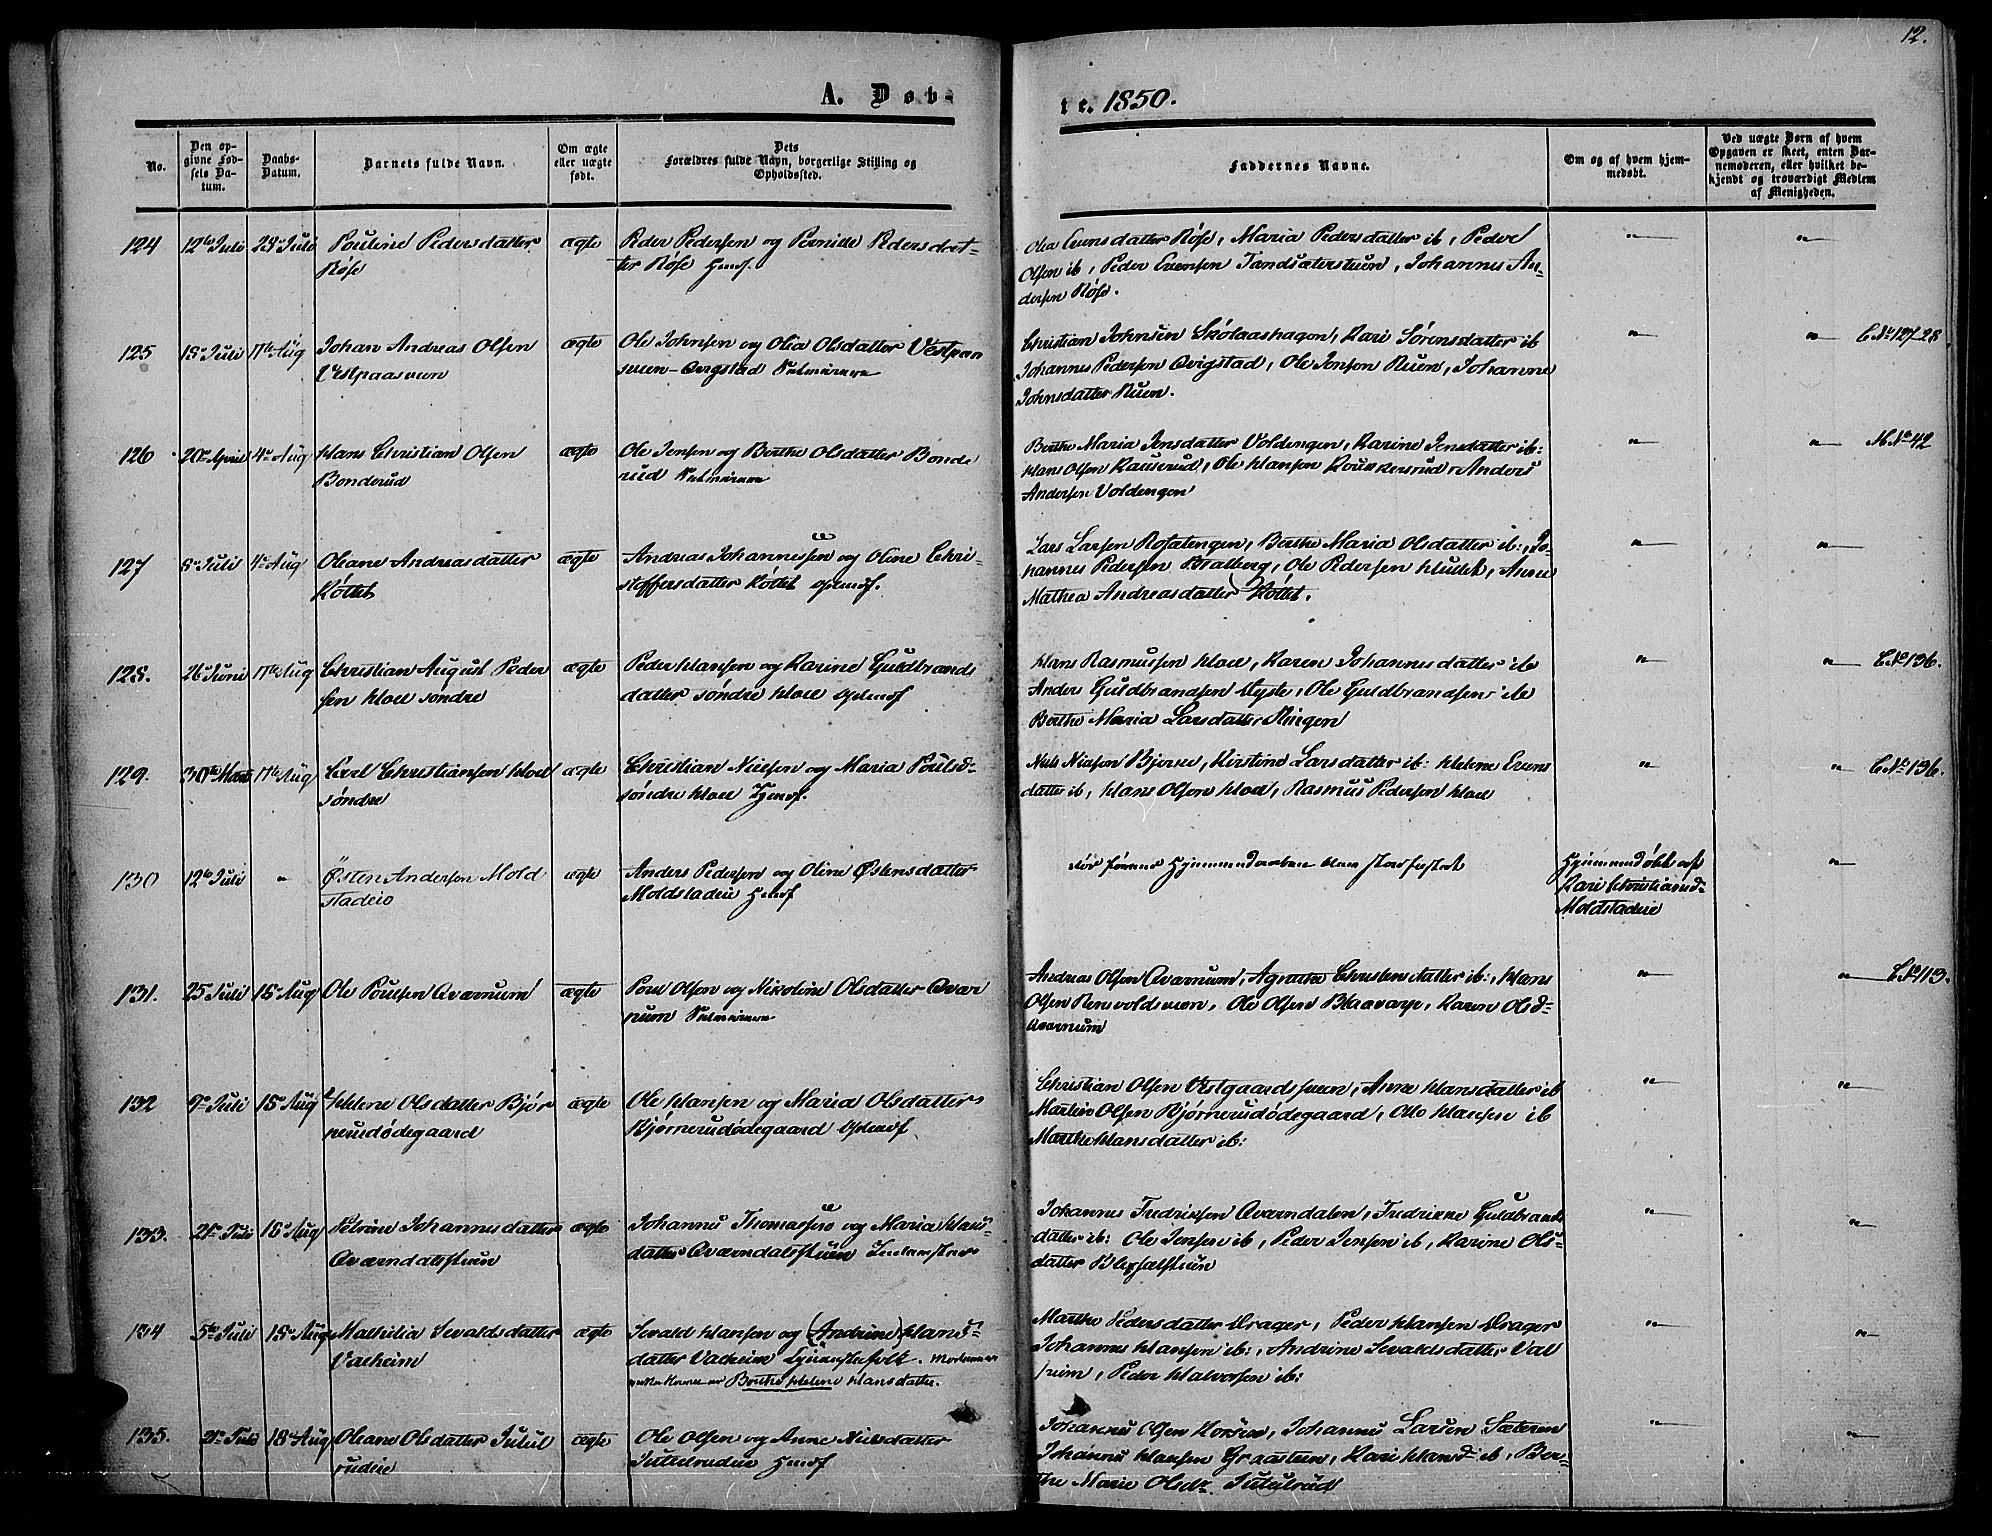 12.
A. Døb-
te. 1850.
No.
Den op-
givne Fød-
sels Da-
tum.
Daabs-
Datum.
Barnets fulde Navn.
Om ægte
eller uægte
født.
Dets
Forældres fulde Navn, borgerlige Stilling og
Opholdssted.
Faddernes Navne.
Om og af hvem hjem-
medøbt.
Ved uægte Børn af hvem
Opgaven er skeet, enten Bar-
nemoderen, eller hvilket be-
kjendt og troværdigt Medlem
af Menigheden.
124 12te Juli 28 Juli Pouline Pedersdatter ægte Peder Pedersen og Pernille Pedersdat-
Røse ter Røse
Olia Evensdatter Røse, Maria Pedersdatter ib, Peder
Olsen ib, Peder Evensen Sandsæterstuen, Johannes An-
dersen Røse.
125 18 Juli 11te Aug Johan Andreas Olsen ægte Ole Johnsen og Olia Olsdatter Vestpaa
Vestpaasveen sveen-Qvigstad Selveiere
Christian Johnsen Skolaashagen, Kari Sørensdatter ib
Johannes Pedersen Qvigstad, Ole Jensen Ruen, Johanne
Johnsdatter Ruen.
C No 127-28
126 20 April 4 Aug Hans Christian Olsen ægte Ole Jensen og Berthe Olsdatter Bonde
Bonderud rud Selveiere
Berthe Maria Jensdatter Voldengen, Karine Jensdatter ib:
Hans Olsen Kauserud, Ole Hansen Anders
Andersen Voldengen
M No 42
127 8 Juli 4 Aug Oleane Andreasdatter ægte Andreas Johannessen og Oline Chri-
Køllet stoffersdatter Køllet
Lars Larsen Rosatengen, Berthe Maria Olsdatter ib:, Jo-
hannes Pedersen Braaberg, Ole Pedersen Anne
Mathea Andreasdatter Køllet.
128. 26 Juni 11te Aug Christian August Peder ægte Peder Hansen og Karine Guldbrands
sen Hoel søndre datter søndre Hoel
Hans Rasmussen Hoel, Karen Johannesdatter ib
Anders Guldbrandsen Ole Guldbrandsen ib
Berthe Maria Larsdatter Ringen
C No 136.
129. 30te Marts 11te Aug Carl Christiansen Hoel ægte Christian Nielsen og Maria Poulsd-
søndre søndre Hoel
Niels Nielsen Kirstine Larsdatter ib: Helene Evens
datter ib, Hans Olsen Hoel, Rasmus Pedersen Hoel
C No 136.
130 12te Juli " Østen Andersen Mold ægte Anders Pedersen og Oline Østensdatter
stadeie Moldstadeie
død førend Hjemmedaaben blev stadfæstet
Hjemmedøbt af
Kari Christiansd-
Moldstadeie
131. 25 Juli 18 Aug Ole Poulsen Qværnum ægte Poul Olsen og Nikoline Olsdatter Qvær
num Selveiere
Andreas Olsen Qværnum, Agnethe Christensdatter ib:, Hans
Olsen Ole Olsen Karen Olsd-
Qværnum
C No 113.
132 9 Juli 18 Aug Helene Olsdatter Bjør ægte Ole Hansen og Maria Olsdatter
nerudødegaard Bjørnerudødegaard
Christian Olsen Vestgaardstuen, Anne Hansdatter ib
Martin Olsen Bjørnerudødegaard, Otto Hansen ib
Marthe Hansdatter ib:
133. 21 Juli 18 Aug Petrine Johannesdatter ægte Johannes Thomassen og Maria Hans-
Qværndalsstuen datter Qværndalsstuen
Johannes Fredriksen Qværndalen, Fredrikke Guldbrands
datter ib: Ole Jensen ib, Peder Jensen ib, Karine Ols-
datter
134 5te Juli 18 Aug Mathilia Sevaldsdatter ægte Sevald Hansen og (Andrine) Hans-
Valheim datter Valheim Tjenestefolk. Moderens
rette Navn er Berthe Helene Hansdatter.
Marthe Pedersdatter Drager, Peder Hansen Drager
Johannes Hansen ib:, Andrine Sevaldsdatter Val
heim, Peder Halvorsen ib:
135. 21 Juli 18 Aug Oleane Olsdatter Julul ægte Ole Olsen og Anne Nielsdatter
rudeie Jululrudeie
Johannes Olsen Korsen, Johannes Larsen Sæteren
Johannes Hansen Graasteen, Kari Hansd ib, Ber-
the Marie Olsdr. Jululrud